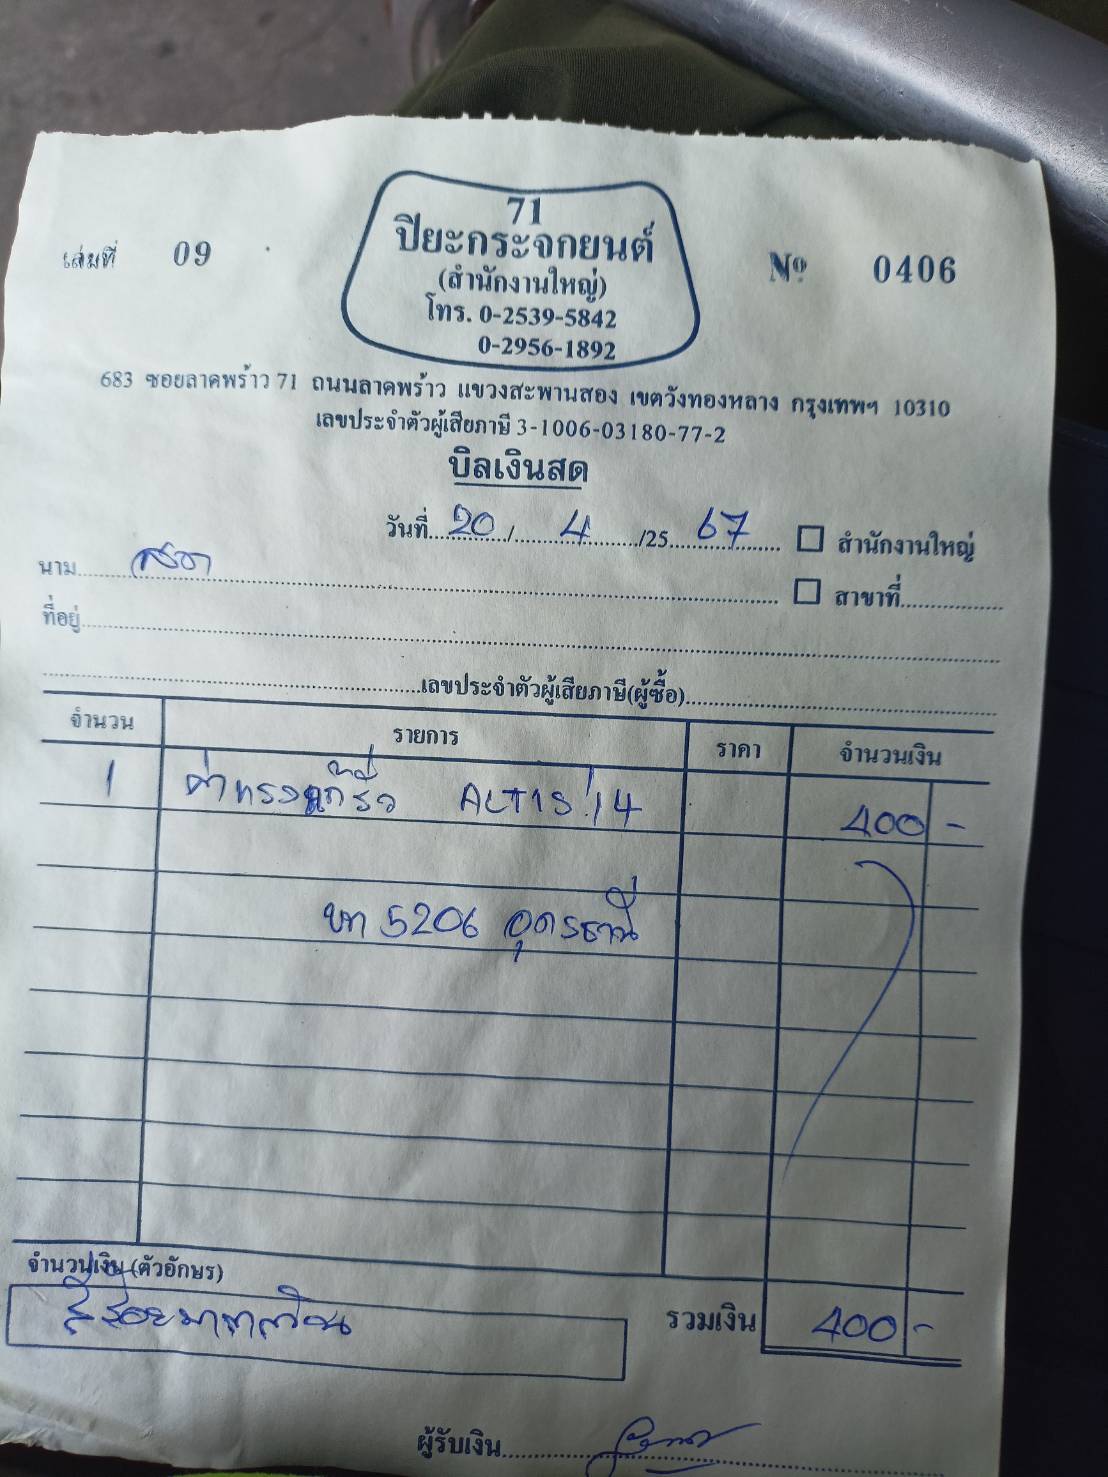 71
ปิยะกระจกยนต์
(สำนักงานใหญ่)
โทร. 0-2539-5842
0-2956-1892
เล่มที่ 09
Nº 0406
683 ซอยลาดพร้าว 71 ถนนลาดพร้าว แขวงสะพานสอง เขตวังทองหลาง กรุงเทพฯ 10310
เลขประจำตัวผู้เสียภาษี 3-1006-03180-77-2
บิลเงินสด
วันที่ 20 / 4 /25 67 สำนักงานใหญ่
นาม
สาขาที่
ที่อยู่
เลขประจำตัวผู้เสียภาษี(ผู้ซื้อ)
จำนวน รายการ ราคา จำนวนเงิน
1 ค่าแรงแก้รั่ว ALTIS '14 400 -
5206 อุดรธานี
จำนวนเงิน (ตัวอักษร)
สี่ร้อยบาทถ้วน รวมเงิน 400 -
ผู้รับเงิน